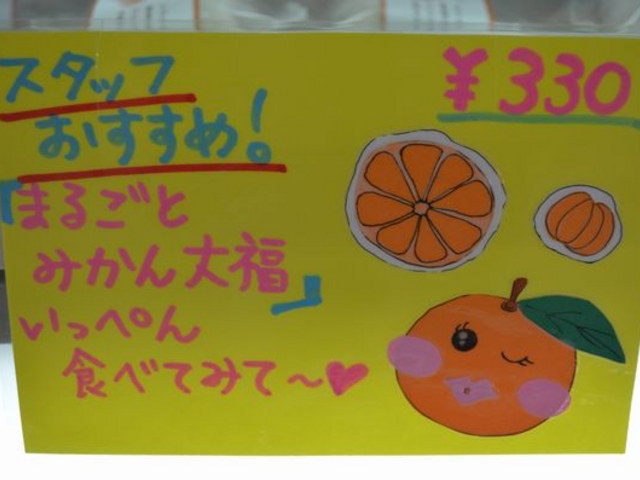 スタッフ
おすすめ!
¥330
『まるごと
みかん大福』
いっぺん
食べてみて~♥